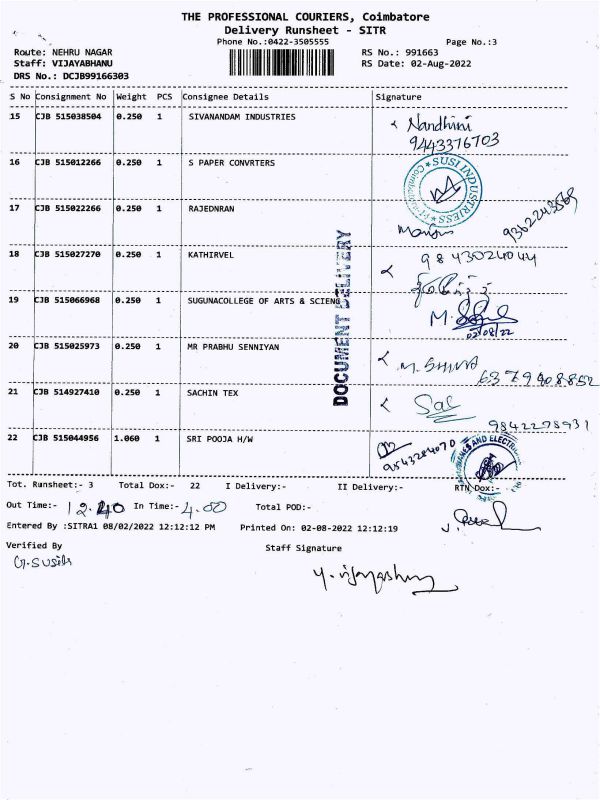 THE PROFESSIONAL COURIERS, Coimbatore
Delivery Runsheet - SITR
Phone No.:0422-3505555 Page No.:3
Route: NEHRU NAGAR RS No.: 991663
Staff: VIJAYABHANU RS Date: 02-Aug-2022
DRS No.: DCJB99166303
S No Consignment No Weight PCS Consignee Details Signature
15 CJB 515038504 0.250 1 SIVANANDAM INDUSTRIES Nandhini
9443376703
16 CJB 515012266 0.250 1 S PAPER CONVRTERS SUSI INDUSTRIESS
17 CJB 515022266 0.250 1 RAJEDNRAN
18 CJB 515027270 0.250 1 KATHIRVEL 9843024044
19 CJB 515066968 0.250 1 SUGUNACOLLEGE OF ARTS & SCIENC M.
02/08/22
DOCUMENT DELIVERY
20 CJB 515025973 0.250 1 MR PRABHU SENNIYAN M. SHIVA
6379408852
21 CJB 514927410 0.250 1 SACHIN TEX
9842278931
22 CJB 515044956 1.060 1 SRI POOJA H/W
9543284070 AND ELECTR
Tot. Runsheet:- 3 Total Dox:- 22 I Delivery:- II Delivery:- RTN Dox:-
Out Time:- 12.40 In Time:- 4.00 Total POD:-
Entered By :SITRA1 08/02/2022 12:12:12 PM Printed On: 02-08-2022 12:12:19
Verified By Staff Signature